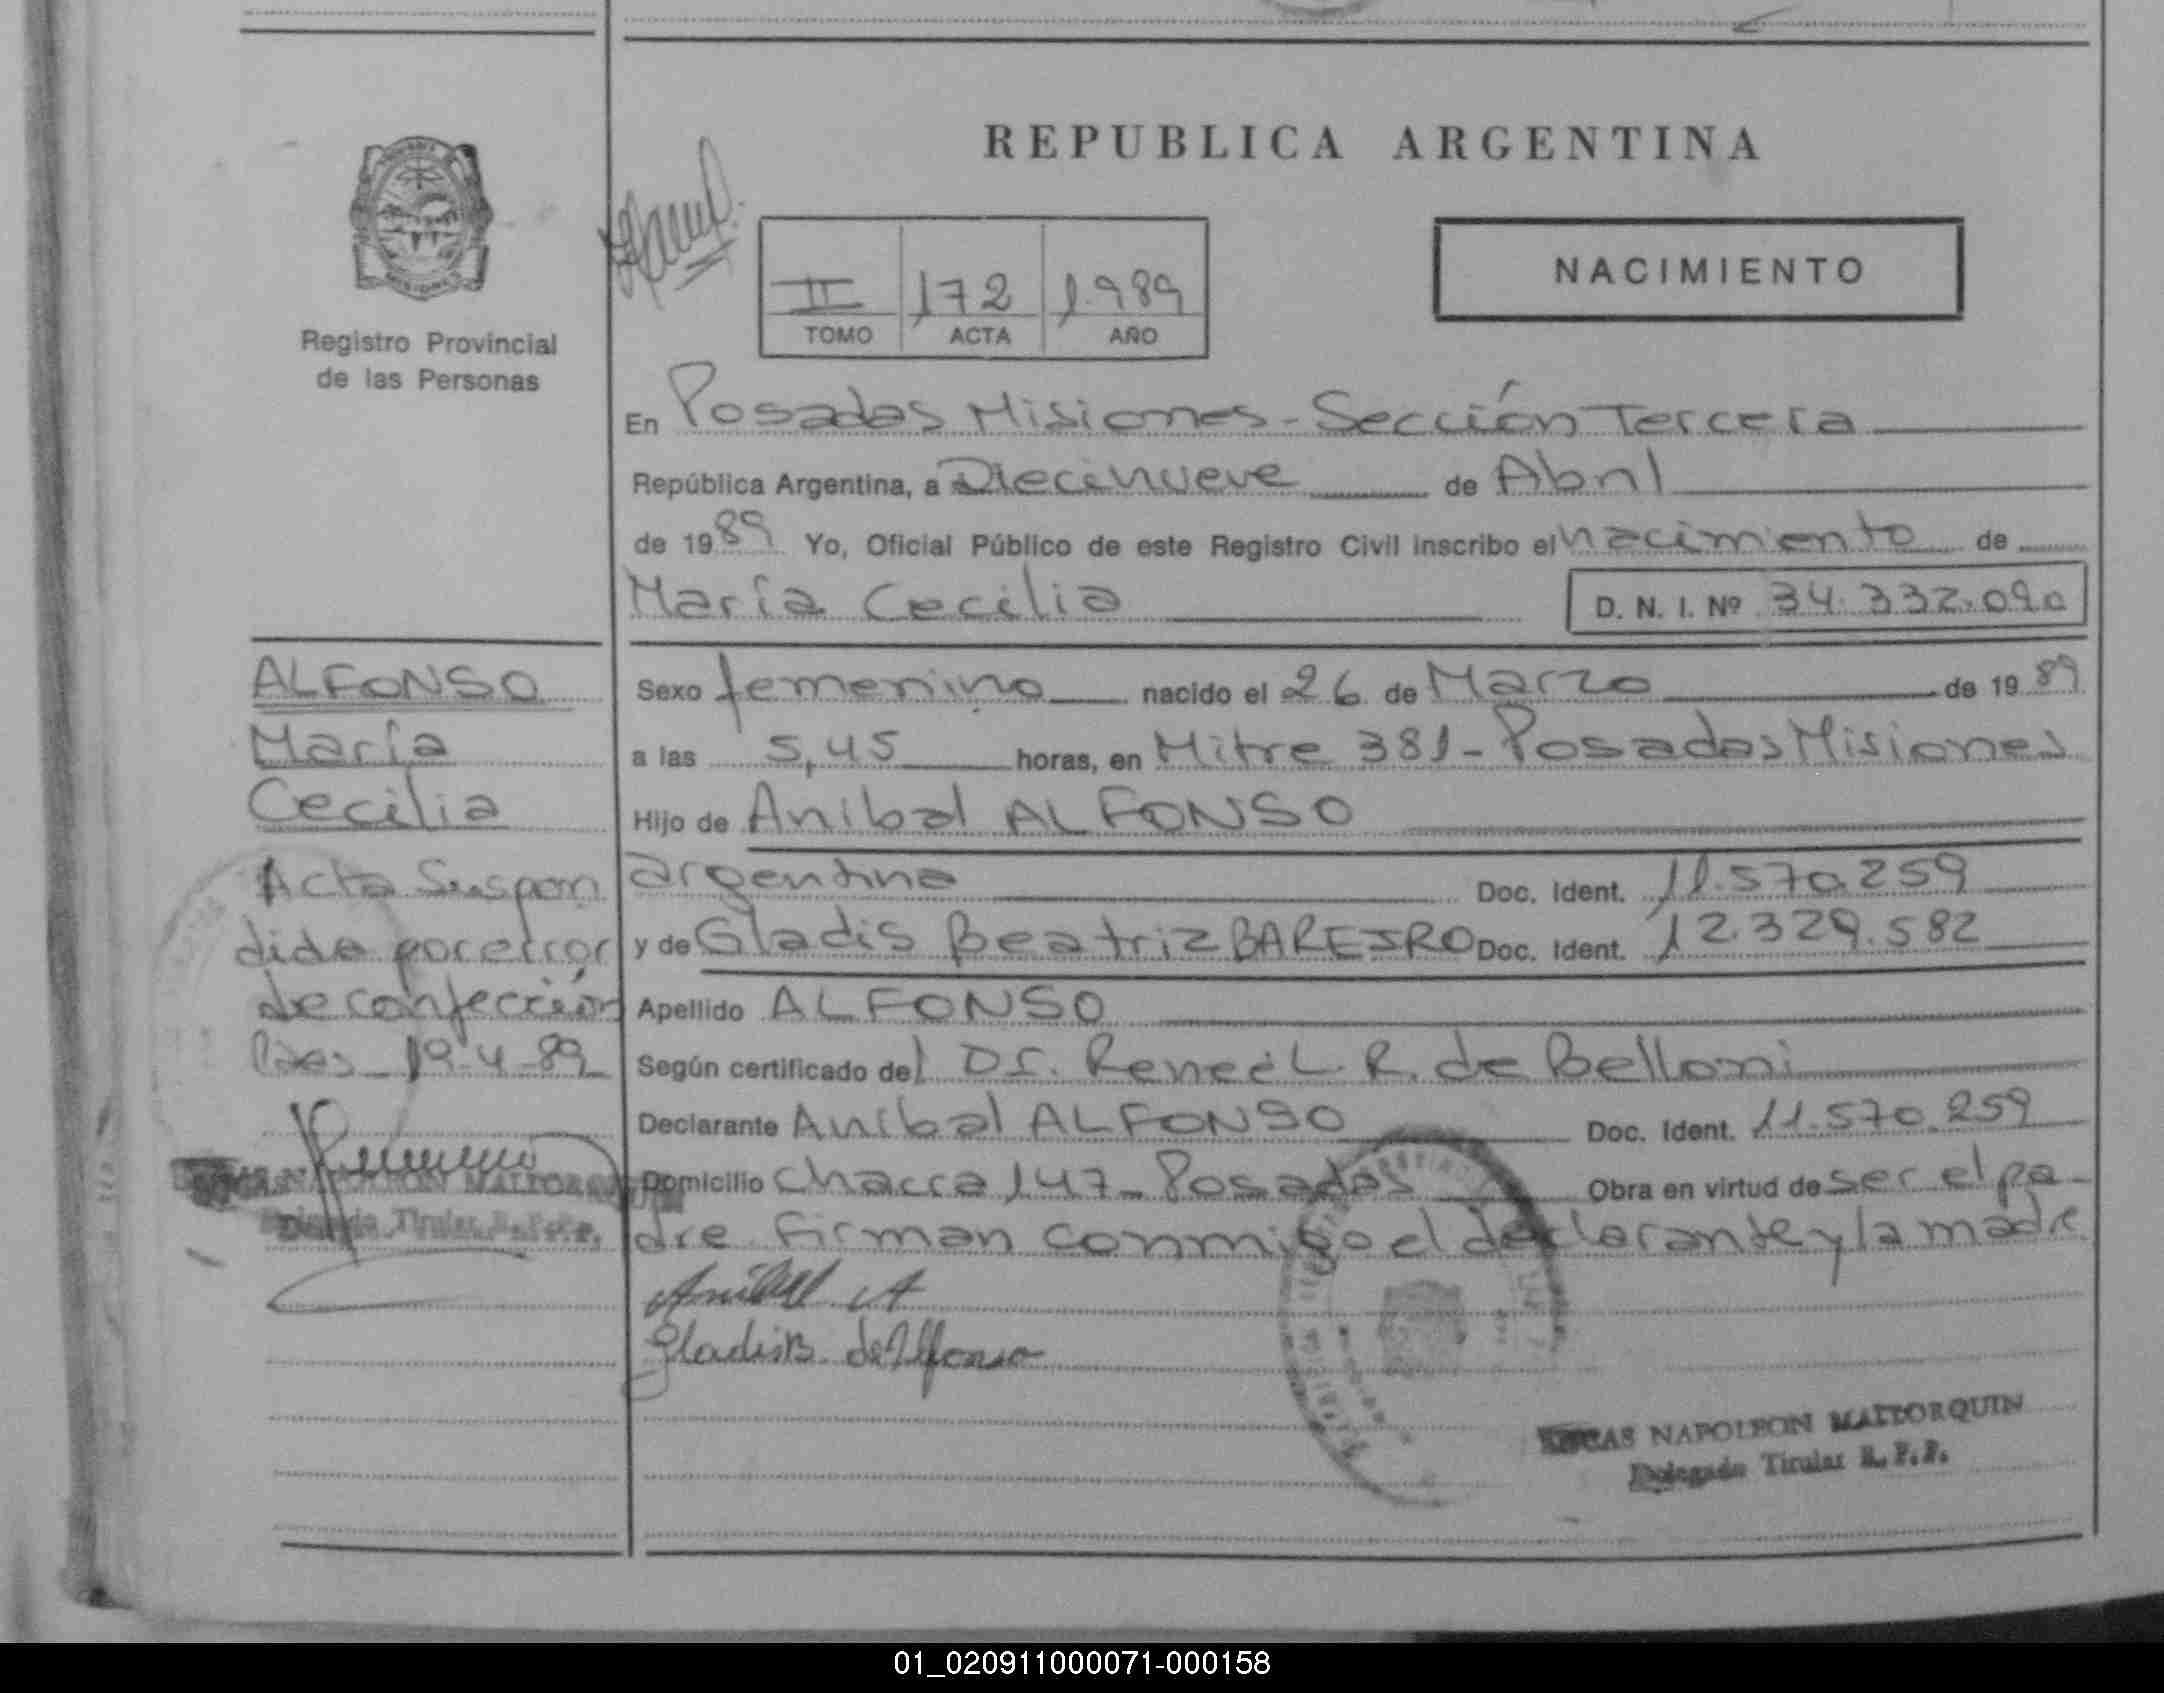 REPUBLICA ARGENTINA
NACIMIENTO
II 172 1989
TOMO ACTA AÑO
Registro Provincial
de las Personas
En Posadas Misiones - Sección Tercera
República Argentina, a Diecinueve de Abril
de 1989 Yo, Oficial Público de este Registro Civil inscribo el nacimiento de
María Cecilia D. N. I. Nº 34.332.090
ALFONSO
María
Cecilia
Acta Suspen
dida por error
de confección
Pdas 19-4-89
NAPOLEON MALLORQUIN
Delegado Titular R. P. P.
Sexo femenino nacido el 26 de Marzo de 1989
a las 5,45 horas, en Mitre 381 - Posadas Misiones
Hijo de Anibal ALFONSO
argentina Doc. Ident. 11.570.259
y de Gladis Beatriz BAREIRO Doc. Ident. 12.329.582
Apellido ALFONSO
Según certificado del Dr. Reneé L. R. de Belloni
Declarante Anibal ALFONSO Doc. Ident. 11.570.259
Domicilio Chacra 147 - Posadas Obra en virtud de ser el pa-
dre. Firman conmigo el declarante y la madre
Anibal A
Gladis B. de Alfonso
LUCAS NAPOLEON MALLORQUIN
Delegado Titular R. P. P.
01_020911000071-000158